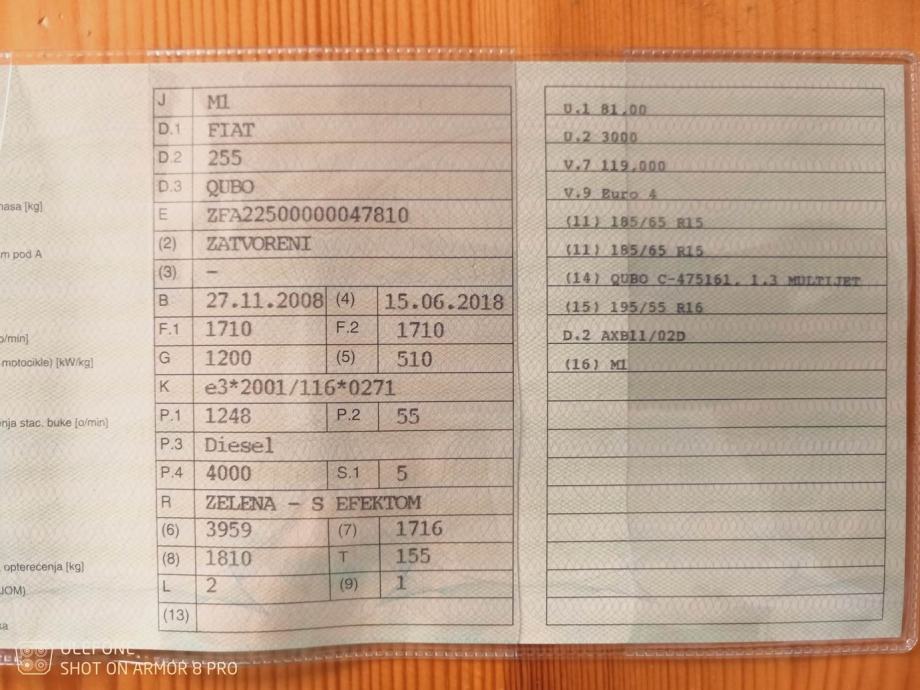 masa [kg]
m pod A
o/min]
motocikle) [kW/kg]
enja stac. buke [o/min]
opterećenja [kg]
J M1
D.1 FIAT
D.2 255
D.3 QUBO
E ZFA22500000047810
(2) ZATVORENI
(3) –
B 27.11.2008 (4) 15.06.2018
F.1 1710 F.2 1710
G 1200 (5) 510
K e3*2001/116*0271
P.1 1248 P.2 55
P.3 Diesel
P.4 4000 S.1 5
R ZELENA – S EFEKTOM
(6) 3959 (7) 1716
(8) 1810 T 155
L 2 (9) 1
(13)
U.1 81,00
U.2 3000
V.7 119,000
V.9 Euro 4
(11) 185/65 R15
(11) 185/65 R15
(14) QUBO C-475161, 1.3 MULTIJET
(15) 195/55 R16
D.2 AXB11/02D
(16) M1
ULEFONE
SHOT ON ARMOR 8 PRO